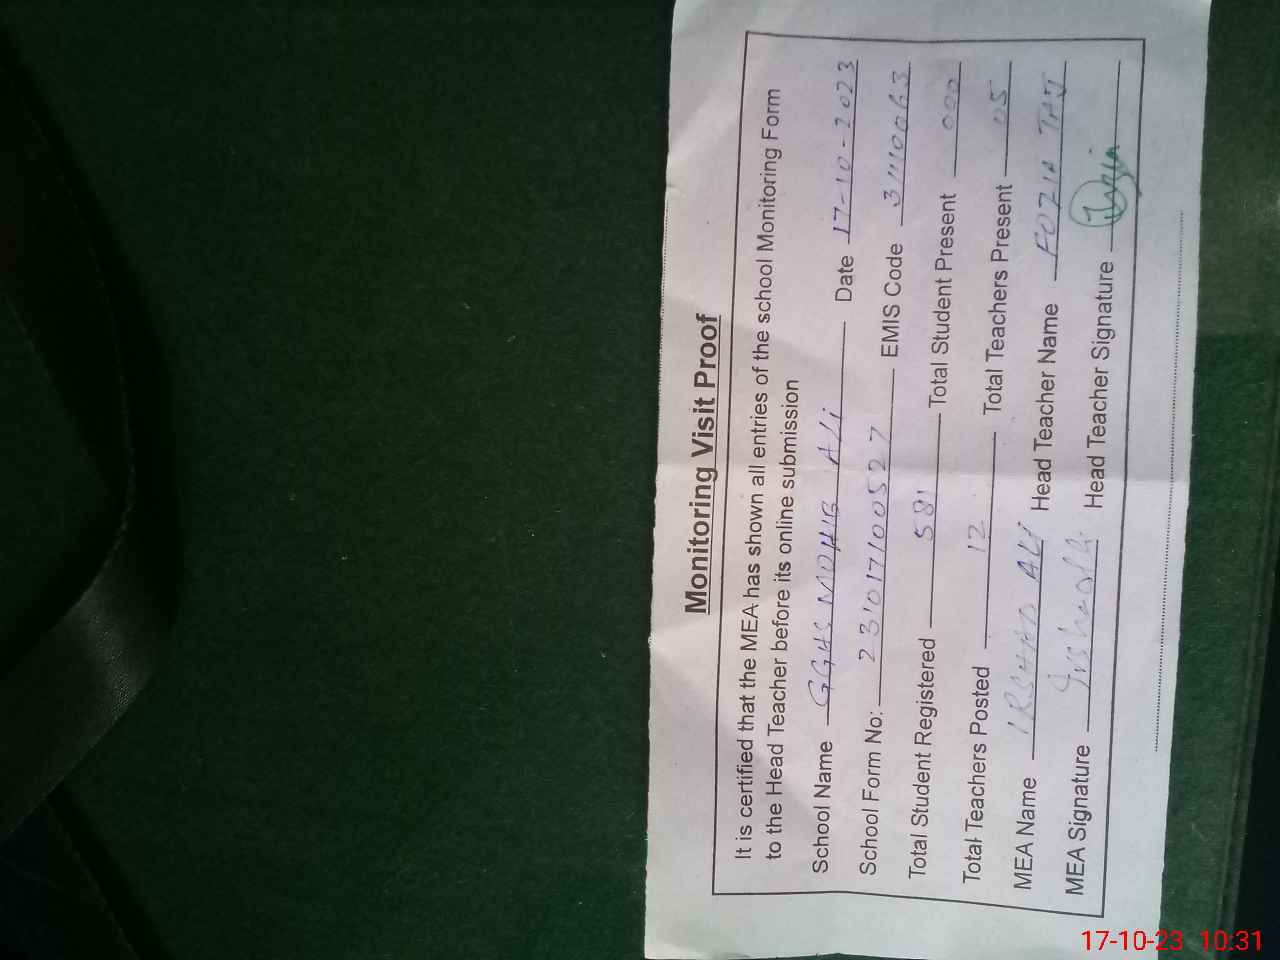 Monitoring Visit Proof
It is certified that the MEA has shown all entries of the school Monitoring Form
to the Head Teacher before its online submission
School Name GGHS MOHIB Ali Date 17-10-2023
School Form No: 231017100527 EMIS Code 31110063
Total Student Registered 581 Total Student Present 000
Total Teachers Posted 12 Total Teachers Present 05
MEA Name IRSHAD ALI Head Teacher Name FOZIA TAJ
MEA Signature Head Teacher Signature
17-10-23 10:31